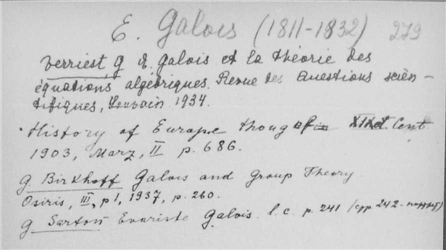 E. Galois (1811-1832) 279
Verriest G E. Galois et la théorie des
équations algébriques. Revue des Questions scien-
tifiques, Louvain 1934.
History of Europe XIX Cent.
1903, Marz, II p. 686.
G Birkhoff Galois and Group Theory
Osiris, III, p1, 1937, p. 260.
G Sarton Evariste Galois. l.c. p. 241 (pp 242-